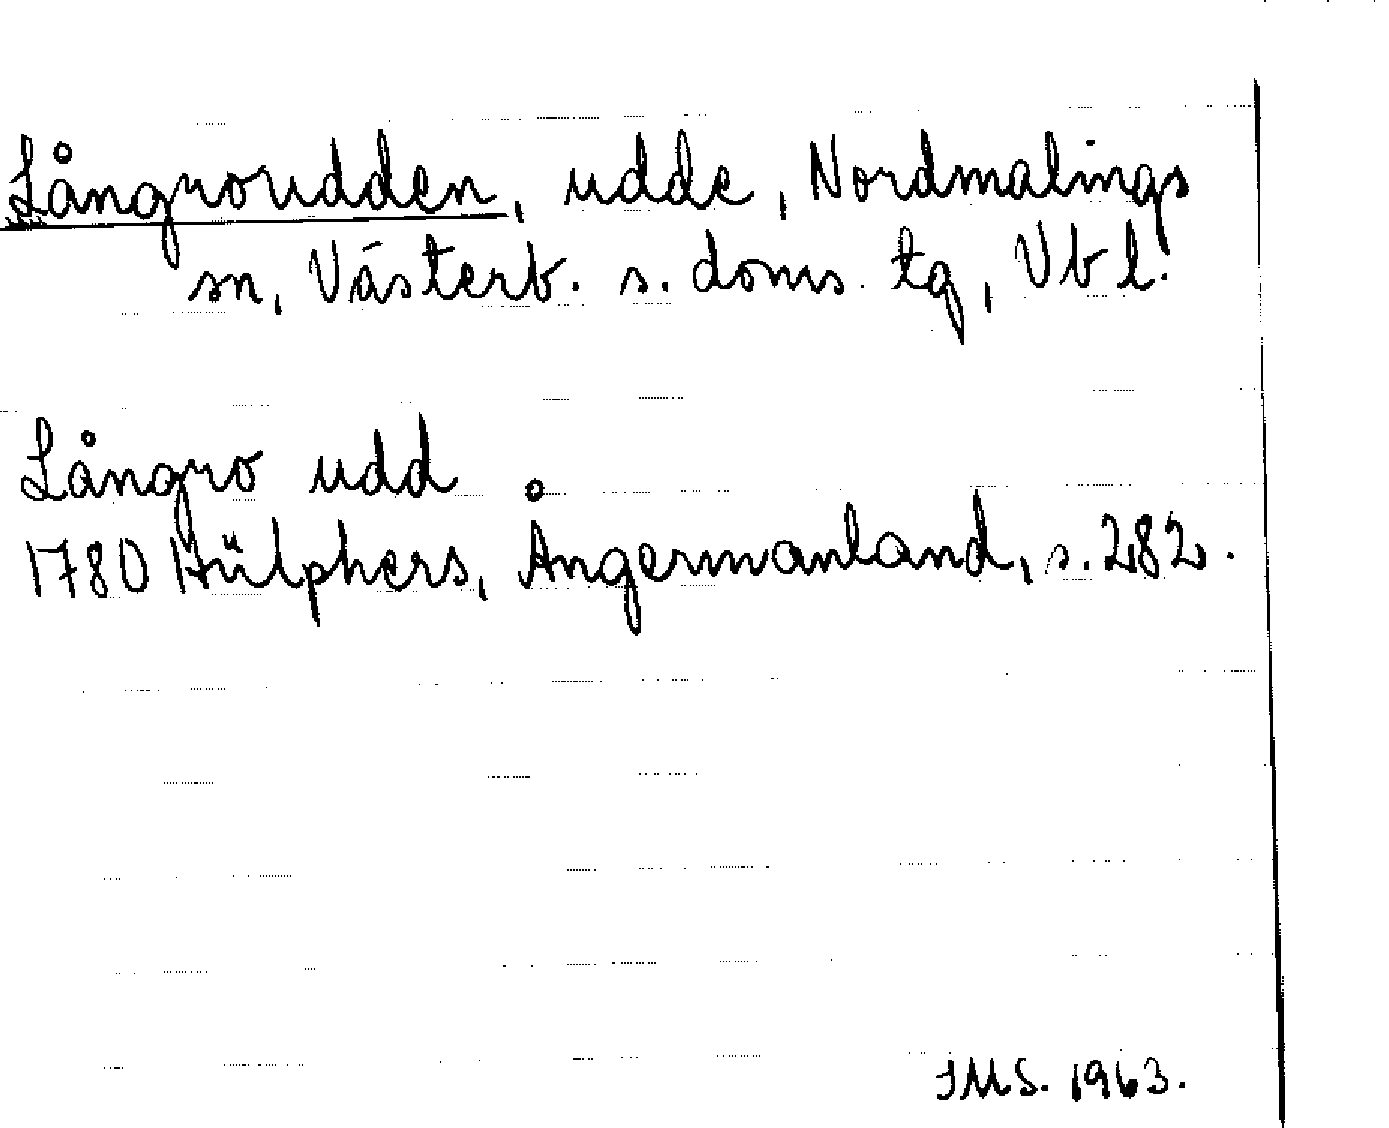 Långroudden, udde, Nordmalings
sn, Västerb. s. doms. tg, Vb l.
Långro udd
1780 Hülphers, Ångermanland, s. 282.
JMS. 1963.